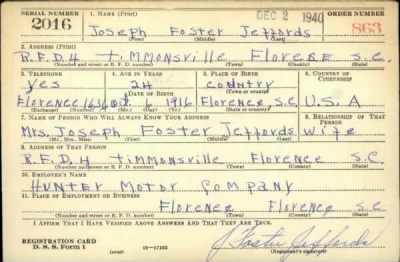 SERIAL NUMBER 1. NAME (Print) DEC 2 1940 ORDER NUMBER
2016 Joseph Foster Jeffords 863
(First) (Middle) (Last)
2. ADDRESS (Print)
R.F.D. 4 Timmonsville Florence S.C.
(Number and street or R. F. D. number) (Town) (County) (State)
3. TELEPHONE 4. AGE IN YEARS 5. PLACE OF BIRTH 6. COUNTRY OF CITIZENSHIP
Yes 24 County
DATE OF BIRTH
Florence Oct 6 1916 Florence, S.C. U.S.A
(Exchange) (Number) (Mo.) (Day) (Yr.) (State or country)
7. NAME OF PERSON WHO WILL ALWAYS KNOW YOUR ADDRESS 8. RELATIONSHIP OF THAT PERSON
Mrs. Joseph Foster Jeffords wife
(Mr., Mrs., Miss) (First) (Middle) (Last)
9. ADDRESS OF THAT PERSON
R.F.D. 4 Timmonsville Florence S.C.
(Number and street or R. F. D. number) (Town) (County) (State)
10. EMPLOYER'S NAME
Hunter Motor Company
11. PLACE OF EMPLOYMENT OR BUSINESS
Florence Florence S.C.
(Number and street or R. F. D. number) (Town) (County) (State)
I AFFIRM THAT I HAVE VERIFIED ABOVE ANSWERS AND THAT THEY ARE TRUE.
REGISTRATION CARD
D. S. S. Form 1 (over) 16-17105 J. Foster Jeffords
(Registrant's signature)